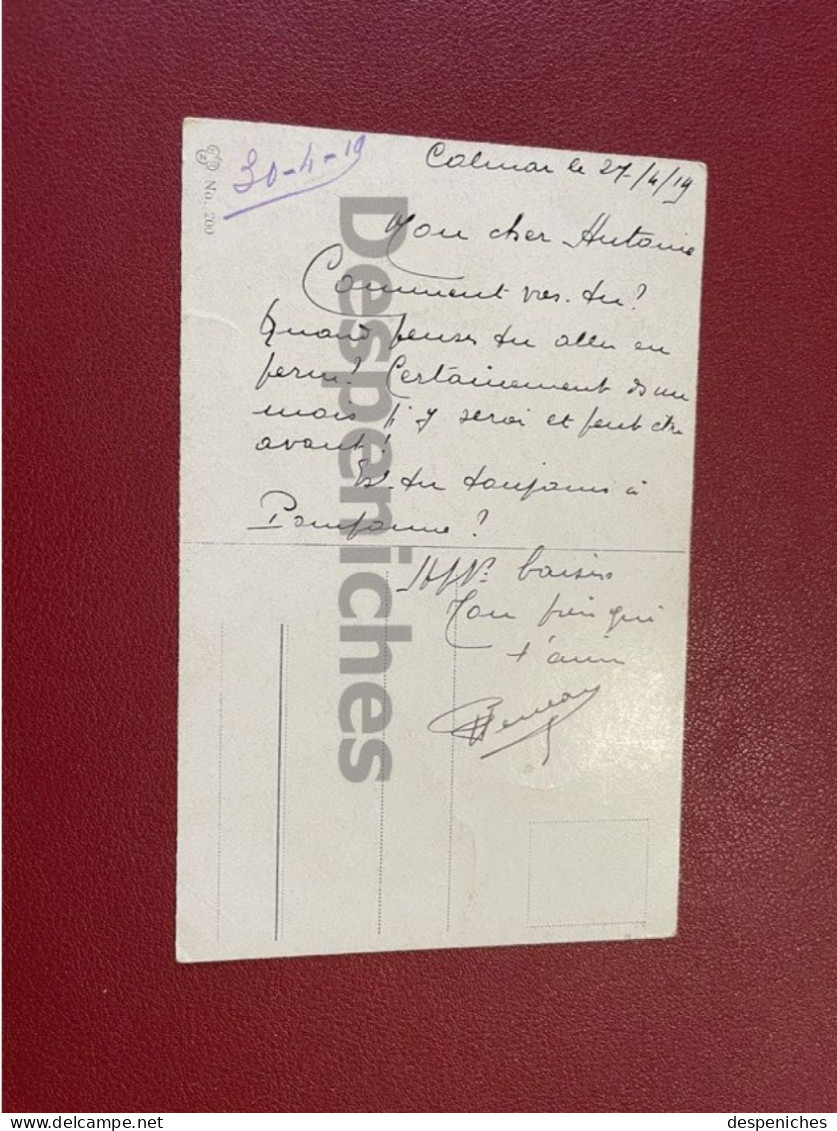 No. 200
30-4-19
Colmar le 27/4/19
Mon cher Antoine
Comment vas-tu?
Quand penses tu aller en
perm? Certainement ds un
mois j'y serai et peut être
avant!
Es-tu toujours à
Pomponne?
baisers
Ton frère qui
t'aime
Despeniches
delcampe.net
despeniches